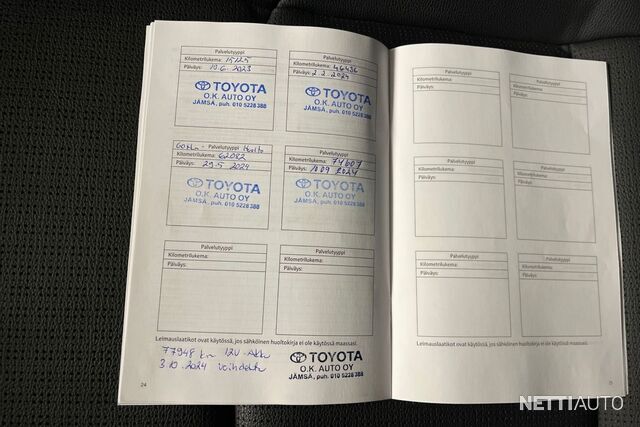 Palvelutyyppi
Kilometrilukema: 15125
Päiväys: 10.6.2023
TOYOTA
O.K. AUTO OY
JÄMSÄ, puh. 010 5228 388
Palvelutyyppi
Kilometrilukema: 46436
Päiväys: 2.2.2024
TOYOTA
O.K. AUTO OY
JÄMSÄ, puh. 010 5228 388
60 tkm - Palvelutyyppi Huolto
Kilometrilukema: 62082
Päiväys: 29.5 2024
TOYOTA
O.K. AUTO OY
JÄMSÄ, puh. 010 5228 388
Palvelutyyppi
Kilometrilukema: 74607
Päiväys: 10.09 2024
TOYOTA
O.K. AUTO OY
JÄMSÄ, puh. 010 5228 388
Palvelutyyppi
Kilometrilukema:
Päiväys:
Palvelutyyppi
Kilometrilukema:
Päiväys:
Leimauslaatikot ovat käytössä, jos sähköinen huoltokirja ei ole käytössä maassasi.
77948 km 12V-Akku
3.10.2024 vaihdettu
TOYOTA
O.K. AUTO OY
JÄMSÄ, puh. 010 5228 388
24
Palvelutyyppi
Kilometrilukema:
Päiväys:
Palvelutyyppi
Kilometrilukema:
Päiväys:
Palvelutyyppi
Kilometrilukema:
Päiväys:
Palvelutyyppi
Kilometrilukema:
Päiväys:
Palvelutyyppi
Kilometrilukema:
Päiväys:
Palvelutyyppi
Kilometrilukema:
Päiväys:
Leimauslaatikot ovat käytössä, jos sähköinen huoltokirja ei ole käytössä maassasi.
NETTIAUTO